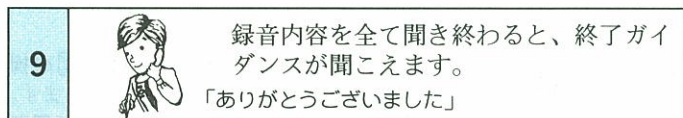 9
録音内容を全て聞き終わると、終了ガイ
ダンスが聞こえます。
「ありがとうございました」